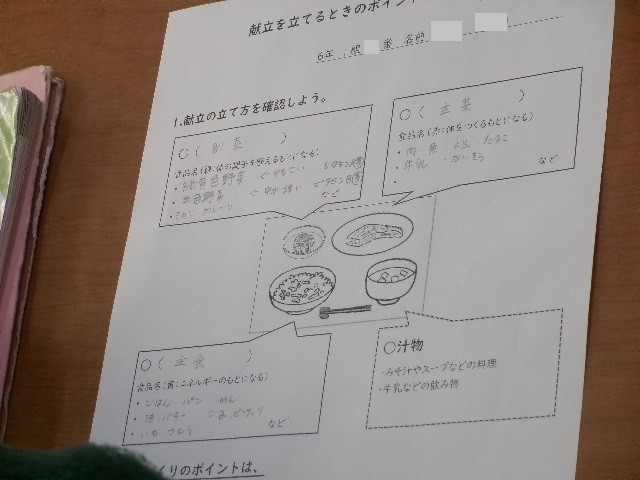 献立を立てるときのポイント
6年 組 番 名前
1.献立の立て方を確認しよう。
○( 副菜 )
食品名(緑:体の調子を整えるもとになる)
・緑黄色野菜
・
フルーツ
など
○( 主菜 )
食品名(赤:体をつくるもとになる)
・肉 魚 たまご
・牛乳 かいそう
・
など
○( 主食 )
食品名(黄:エネルギーのもとになる)
・ごはん パン めん
・油 バター ごま
・いも さとう
など
○汁物
・みそ汁やスープなどの料理
・牛乳などの飲み物
くりのポイントは、